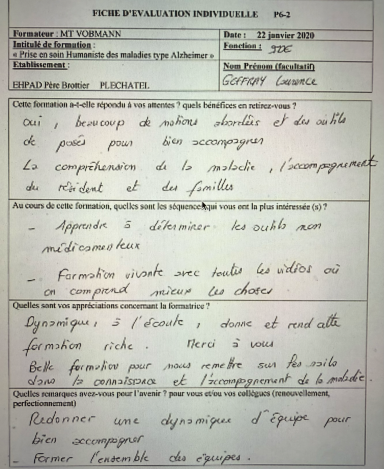 FICHE D'EVALUATION INDIVIDUELLE P6-2
Formateur : MT VOBMANN
Date : 22 janvier 2020
Intitulé de formation :
Fonction : IDE
« Prise en soin Humaniste des maladies type Alzheimer »
Etablissement :
Nom Prénom (facultatif)
GEFFRAY Laurence
EHPAD Père Brottier PLECHATEL
Cette formation a-t-elle répondu à vos attentes ? quels bénéfices en retirez-vous ?
Oui, beaucoup de notions abordées et des outils
de posés pour bien accompagner
La compréhension de la maladie, l'accompagnement
du résident et des familles
Au cours de cette formation, quelles sont les séquences qui vous ont la plus intéressée (s) ?
- Apprendre à déterminer les outils non
médicamenteux
- Formation vivante avec toutes les vidéos où
on comprend mieux les choses
Quelles sont vos appréciations concernant la formatrice ?
Dynamique, à l'écoute, donne et rend cette
formation riche. Merci à vous
Belle formation pour nous remettre sur les rails
dans la connaissance et l'accompagnement de la maladie.
Quelles remarques avez-vous pour l'avenir ? pour vous et/ou vos collègues (renouvellement,
perfectionnement)
- Redonner une dynamique d'équipe pour
bien accompagner
- Former l'ensemble des équipes.